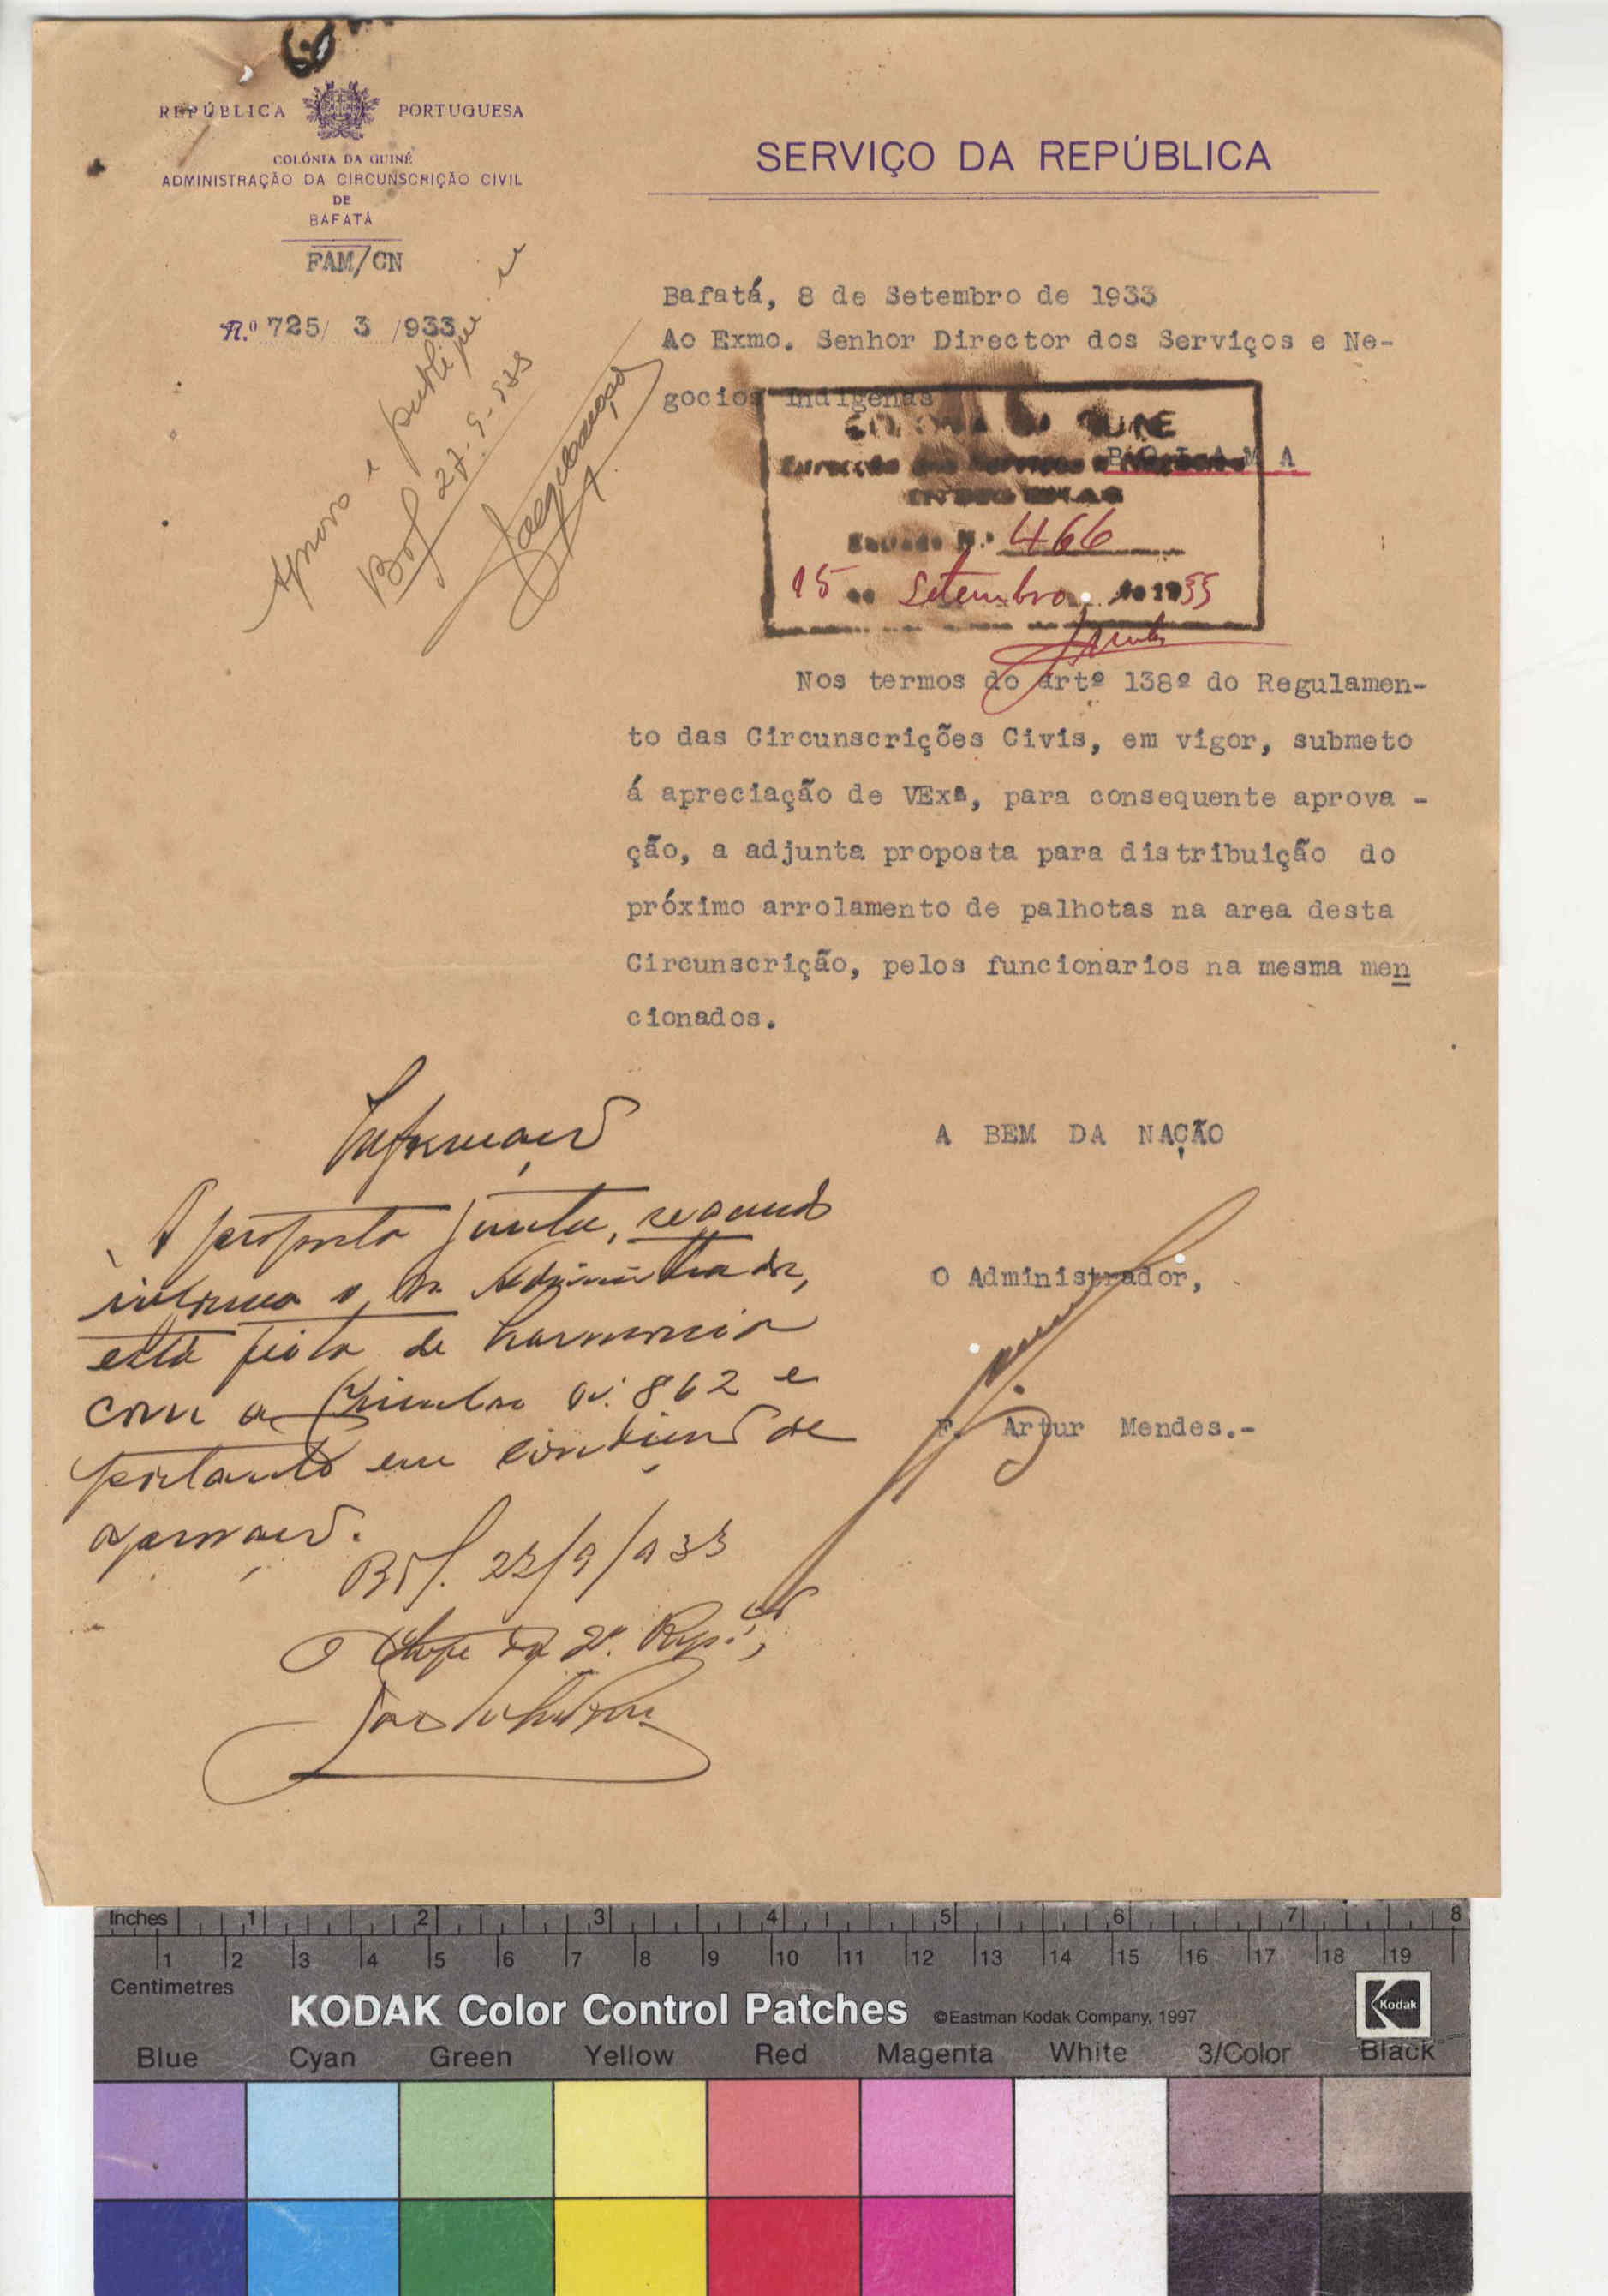 REPÚBLICA PORTUGUESA
COLÓNIA DA GUINÉ
ADMINISTRAÇÃO DA CIRCUNSCRIÇÃO CIVIL
DE
BAFATÁ
FAM/CN
N.º 725/ 3 /933
SERVIÇO DA REPÚBLICA
Bafatá, 8 de Setembro de 1933
Ao Exmo. Senhor Director dos Serviços e Ne-
gocios Indigenas
BOLAMA
COLONIA DA GUINE
Direcção dos Serviços e Negocios
INDIGENAS
Entrada N.º 466
15 de Setembro de 1933
Aprovo e publique se
Bol. 27-9-933
Nos termos do artº 138º do Regulamen-
to das Circunscrições Civis, em vigor, submeto
á apreciação de VExª, para consequente aprova -
ção, a adjunta proposta para distribuição do
próximo arrolamento de palhotas na area desta
Circunscrição, pelos funcionarios na mesma men
cionados.
A BEM DA NAÇÃO
O Administrador,
F. Artur Mendes.-
Informação
A proposta junta, segundo
informa o Sr. Administrador,
está feita de harmonia
com a Circular nº 862 e
portanto em condições de
aprovação.
Bol. 23/9/933
O Chefe da 2ª. Repº,
Inches 1 2 3 4 5 6 7 8
1 2 3 4 5 6 7 8 9 10 11 12 13 14 15 16 17 18 19
Centimetres
KODAK Color Control Patches ©Eastman Kodak Company, 1997 Kodak
Blue Cyan Green Yellow Red Magenta White 3/Color Black